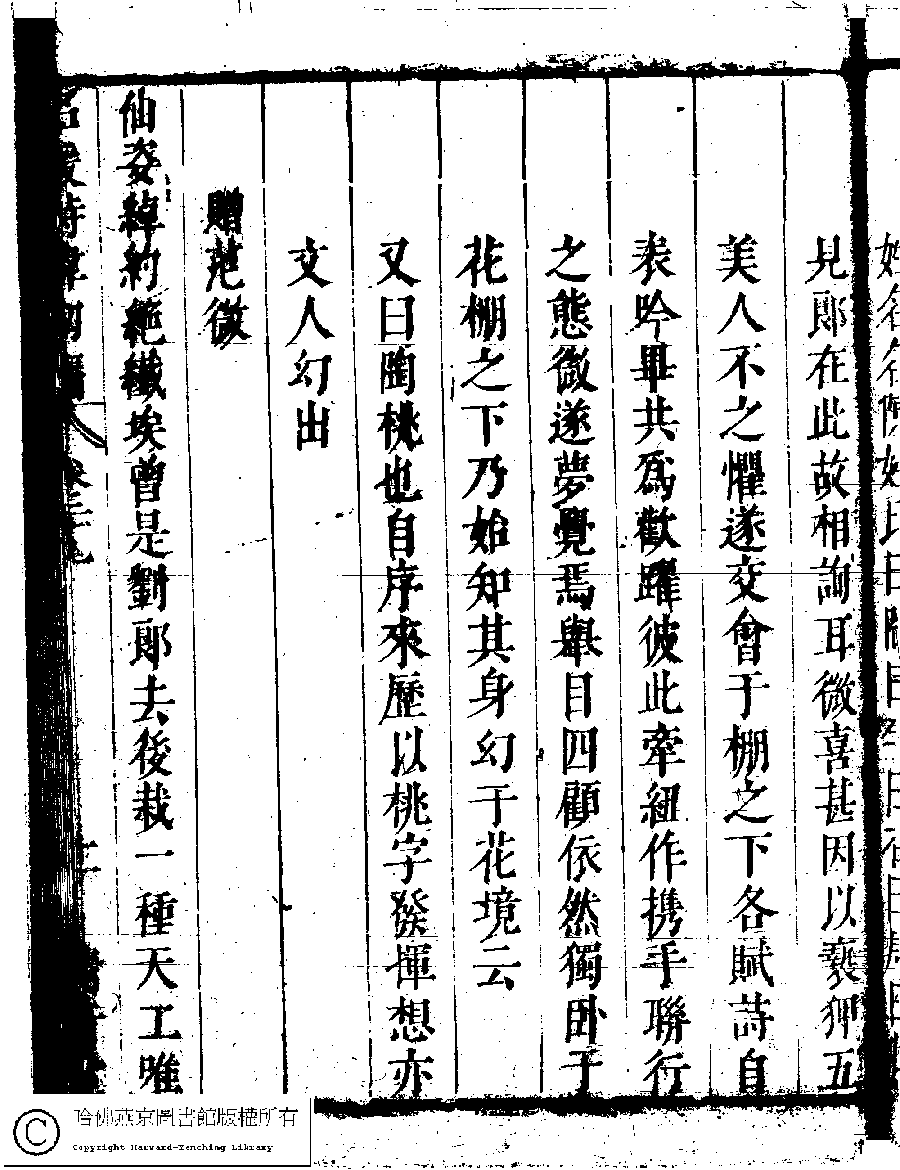 見郎在此故相詢耳微喜甚因以褻狎五
美人不之懼遂交會于棚之下各賦詩自
表吟畢共為歡躍彼此牽紐作携手聯行
之態微遂夢覺焉舉目四顧依然獨卧于
花棚之下乃始知其身幻于花境云
又曰陶桃也自序來歷以桃字發揮想亦
文人幻出
贈范微
仙姿綽約絶纎埃曾是劉郎去後栽一種天工唯
哈佛燕京圖書館版權所有
Copyright Harvard-Yenching Library